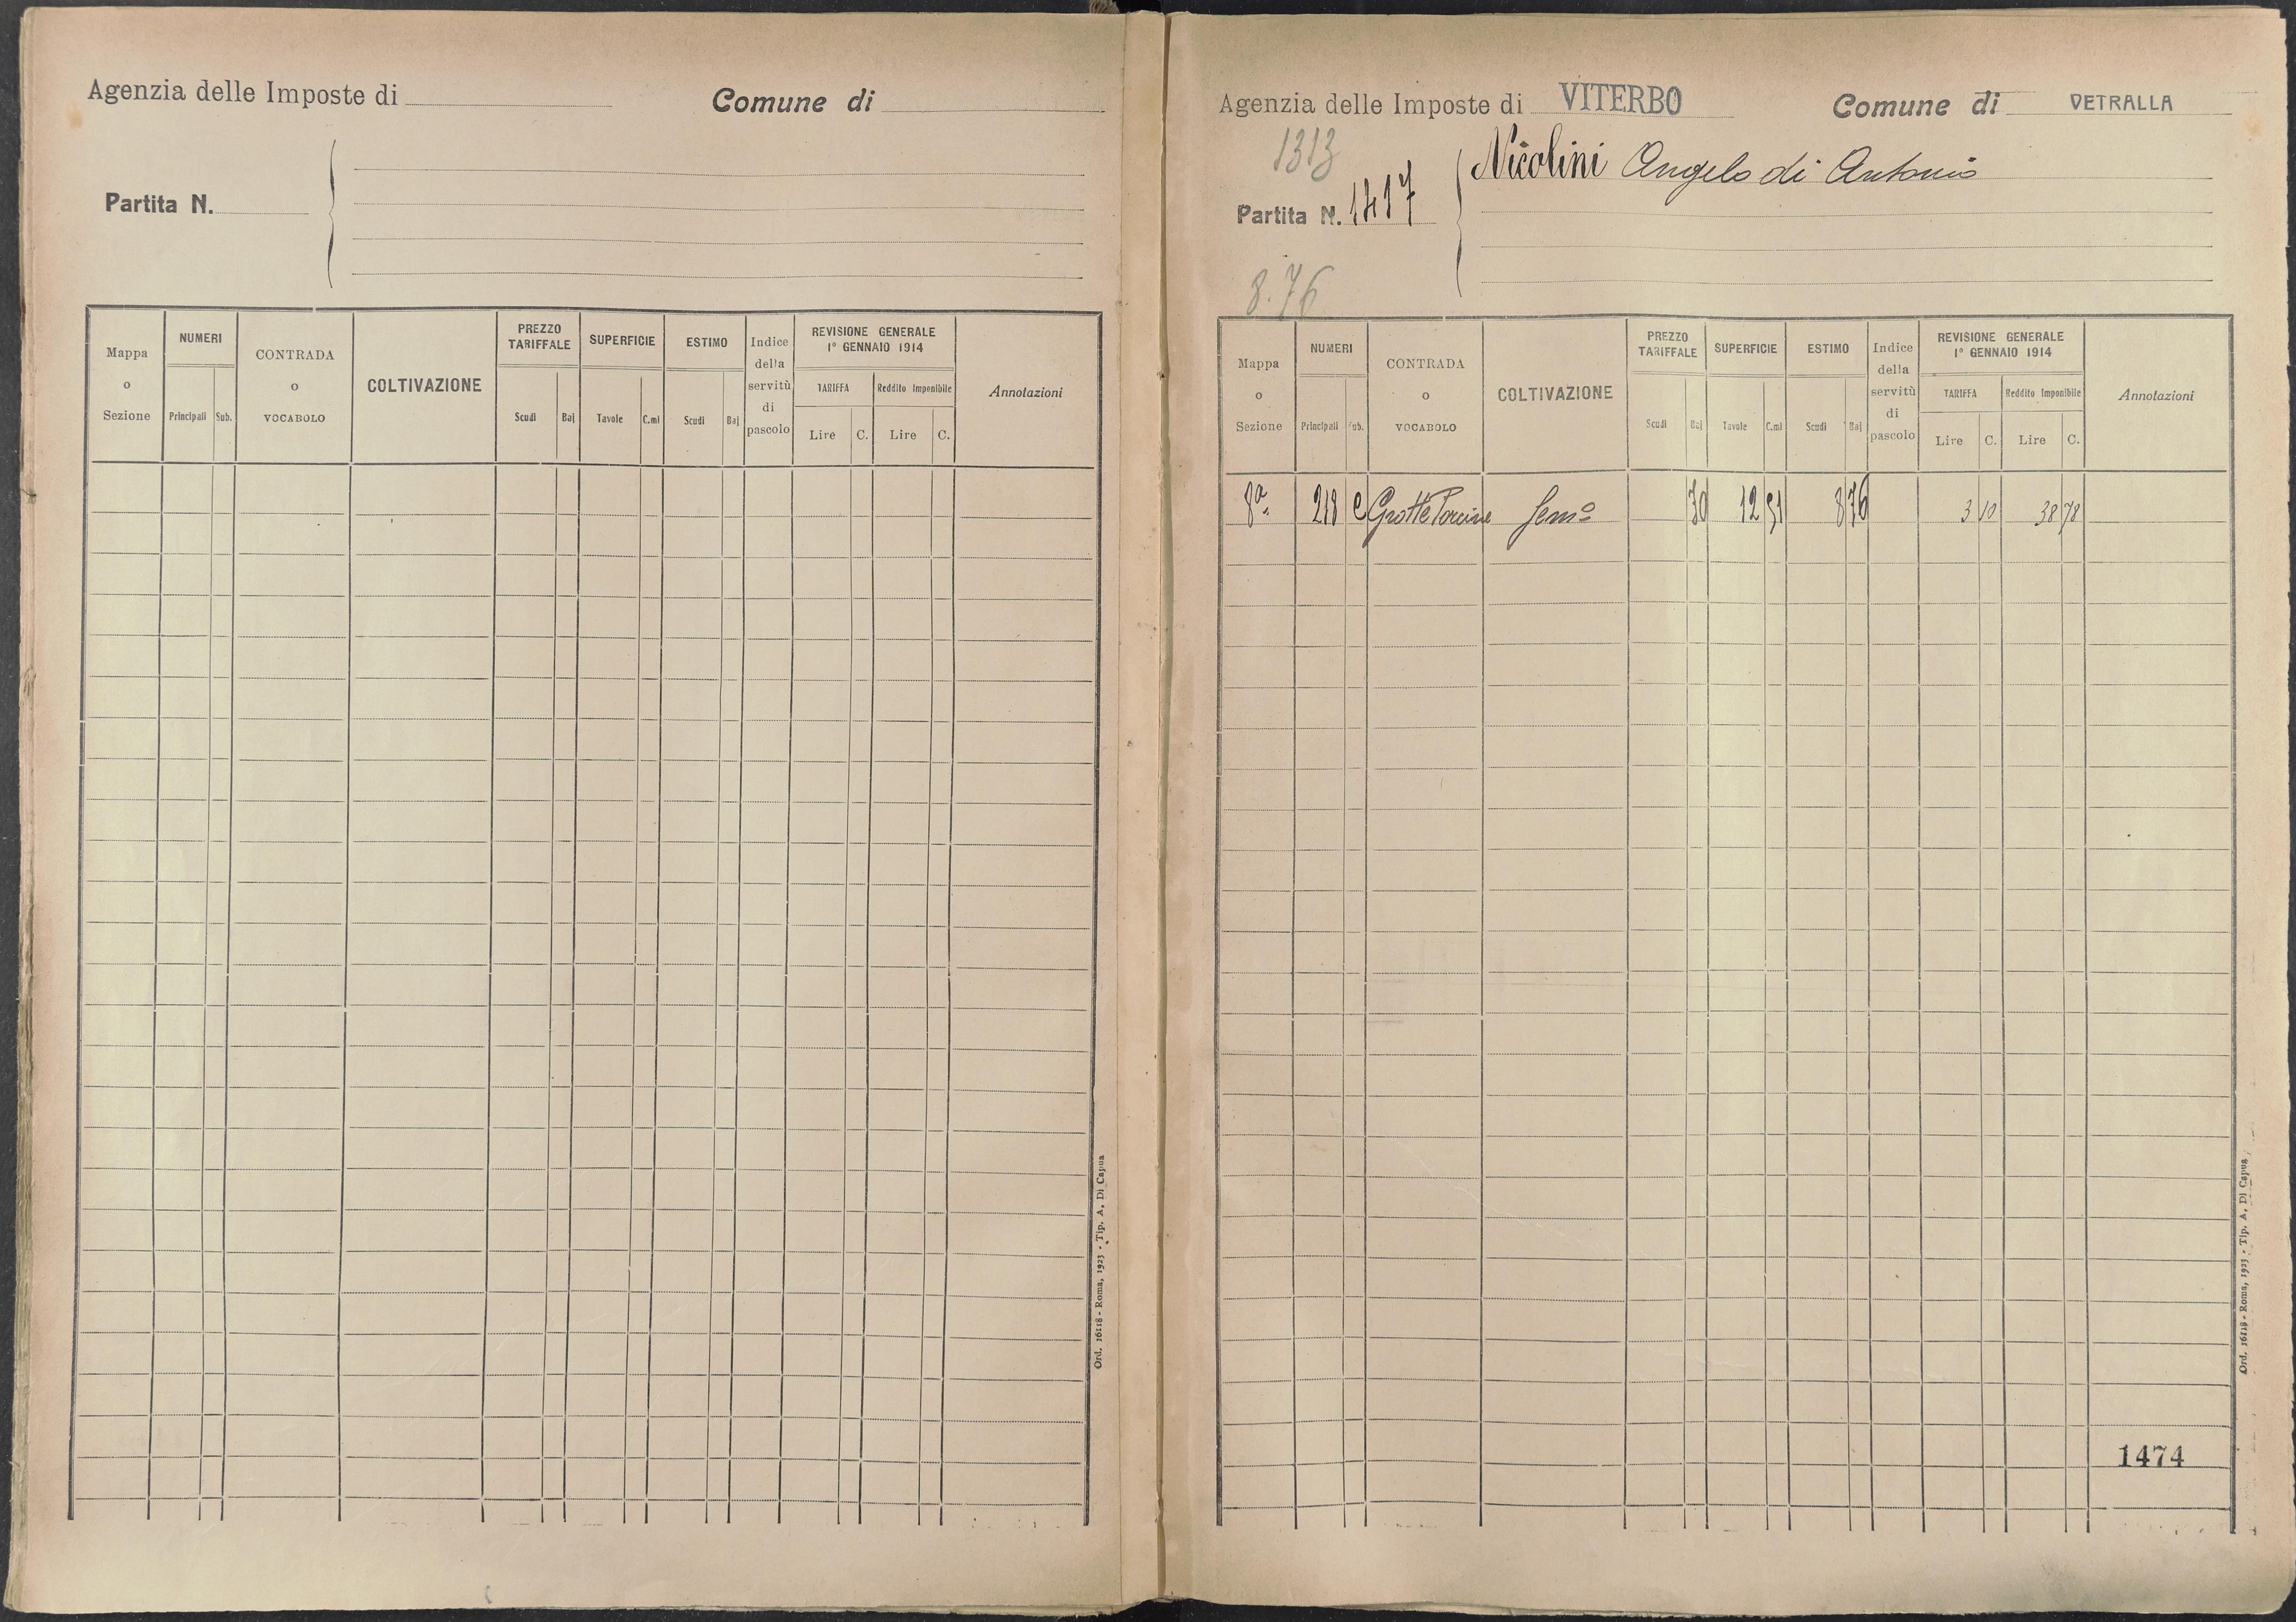 Agenzia delle Imposte di Comune di
Partita N.
Mappa o Sezione NUMERI Principali Sub. CONTRADA o VOCABOLO COLTIVAZIONE PREZZO TARIFFALE Scudi Baj SUPERFICIE Tavole C.mi ESTIMO Scudi Baj Indice della servitù di pascolo REVISIONE GENERALE 1° GENNAIO 1914 TARIFFA Lire C. Reddito Imponibile Lire C. Annotazioni
Ord. 16118 - Roma, 1923 - Tip. A. Di Capua
Agenzia delle Imposte di VITERBO Comune di VETRALLA
1313
Nicolini Angelo di Antonio
Partita N. 1417
8.76
Mappa o Sezione NUMERI Principali Sub. CONTRADA o VOCABOLO COLTIVAZIONE PREZZO TARIFFALE Scudi Baj SUPERFICIE Tavole C.mi ESTIMO Scudi Baj Indice della servitù di pascolo REVISIONE GENERALE 1° GENNAIO 1914 TARIFFA Lire C. Reddito Imponibile Lire C. Annotazioni
8ª 218 e Grotte Porcine Semº 70 12 51 8 76 3 10 38 78
1474
Ord. 16118 - Roma, 1923 - Tip. A. Di Capua